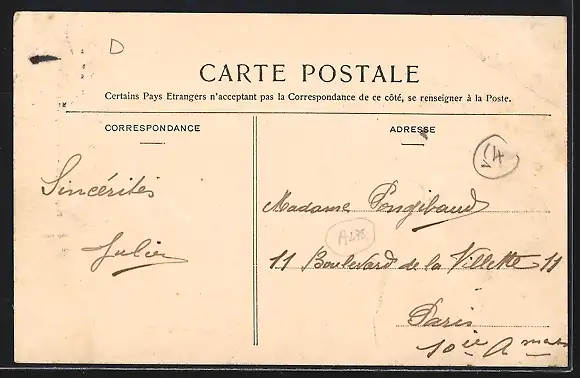 D
CARTE POSTALE
Certains Pays Etrangers n'acceptant pas la Correspondance de ce côté, se renseigner à la Poste.
CORRESPONDANCE
ADRESSE
Sincérités
Julien
Madame Pongibaud
11 Boulevard de la Villette 11
Paris
10ie